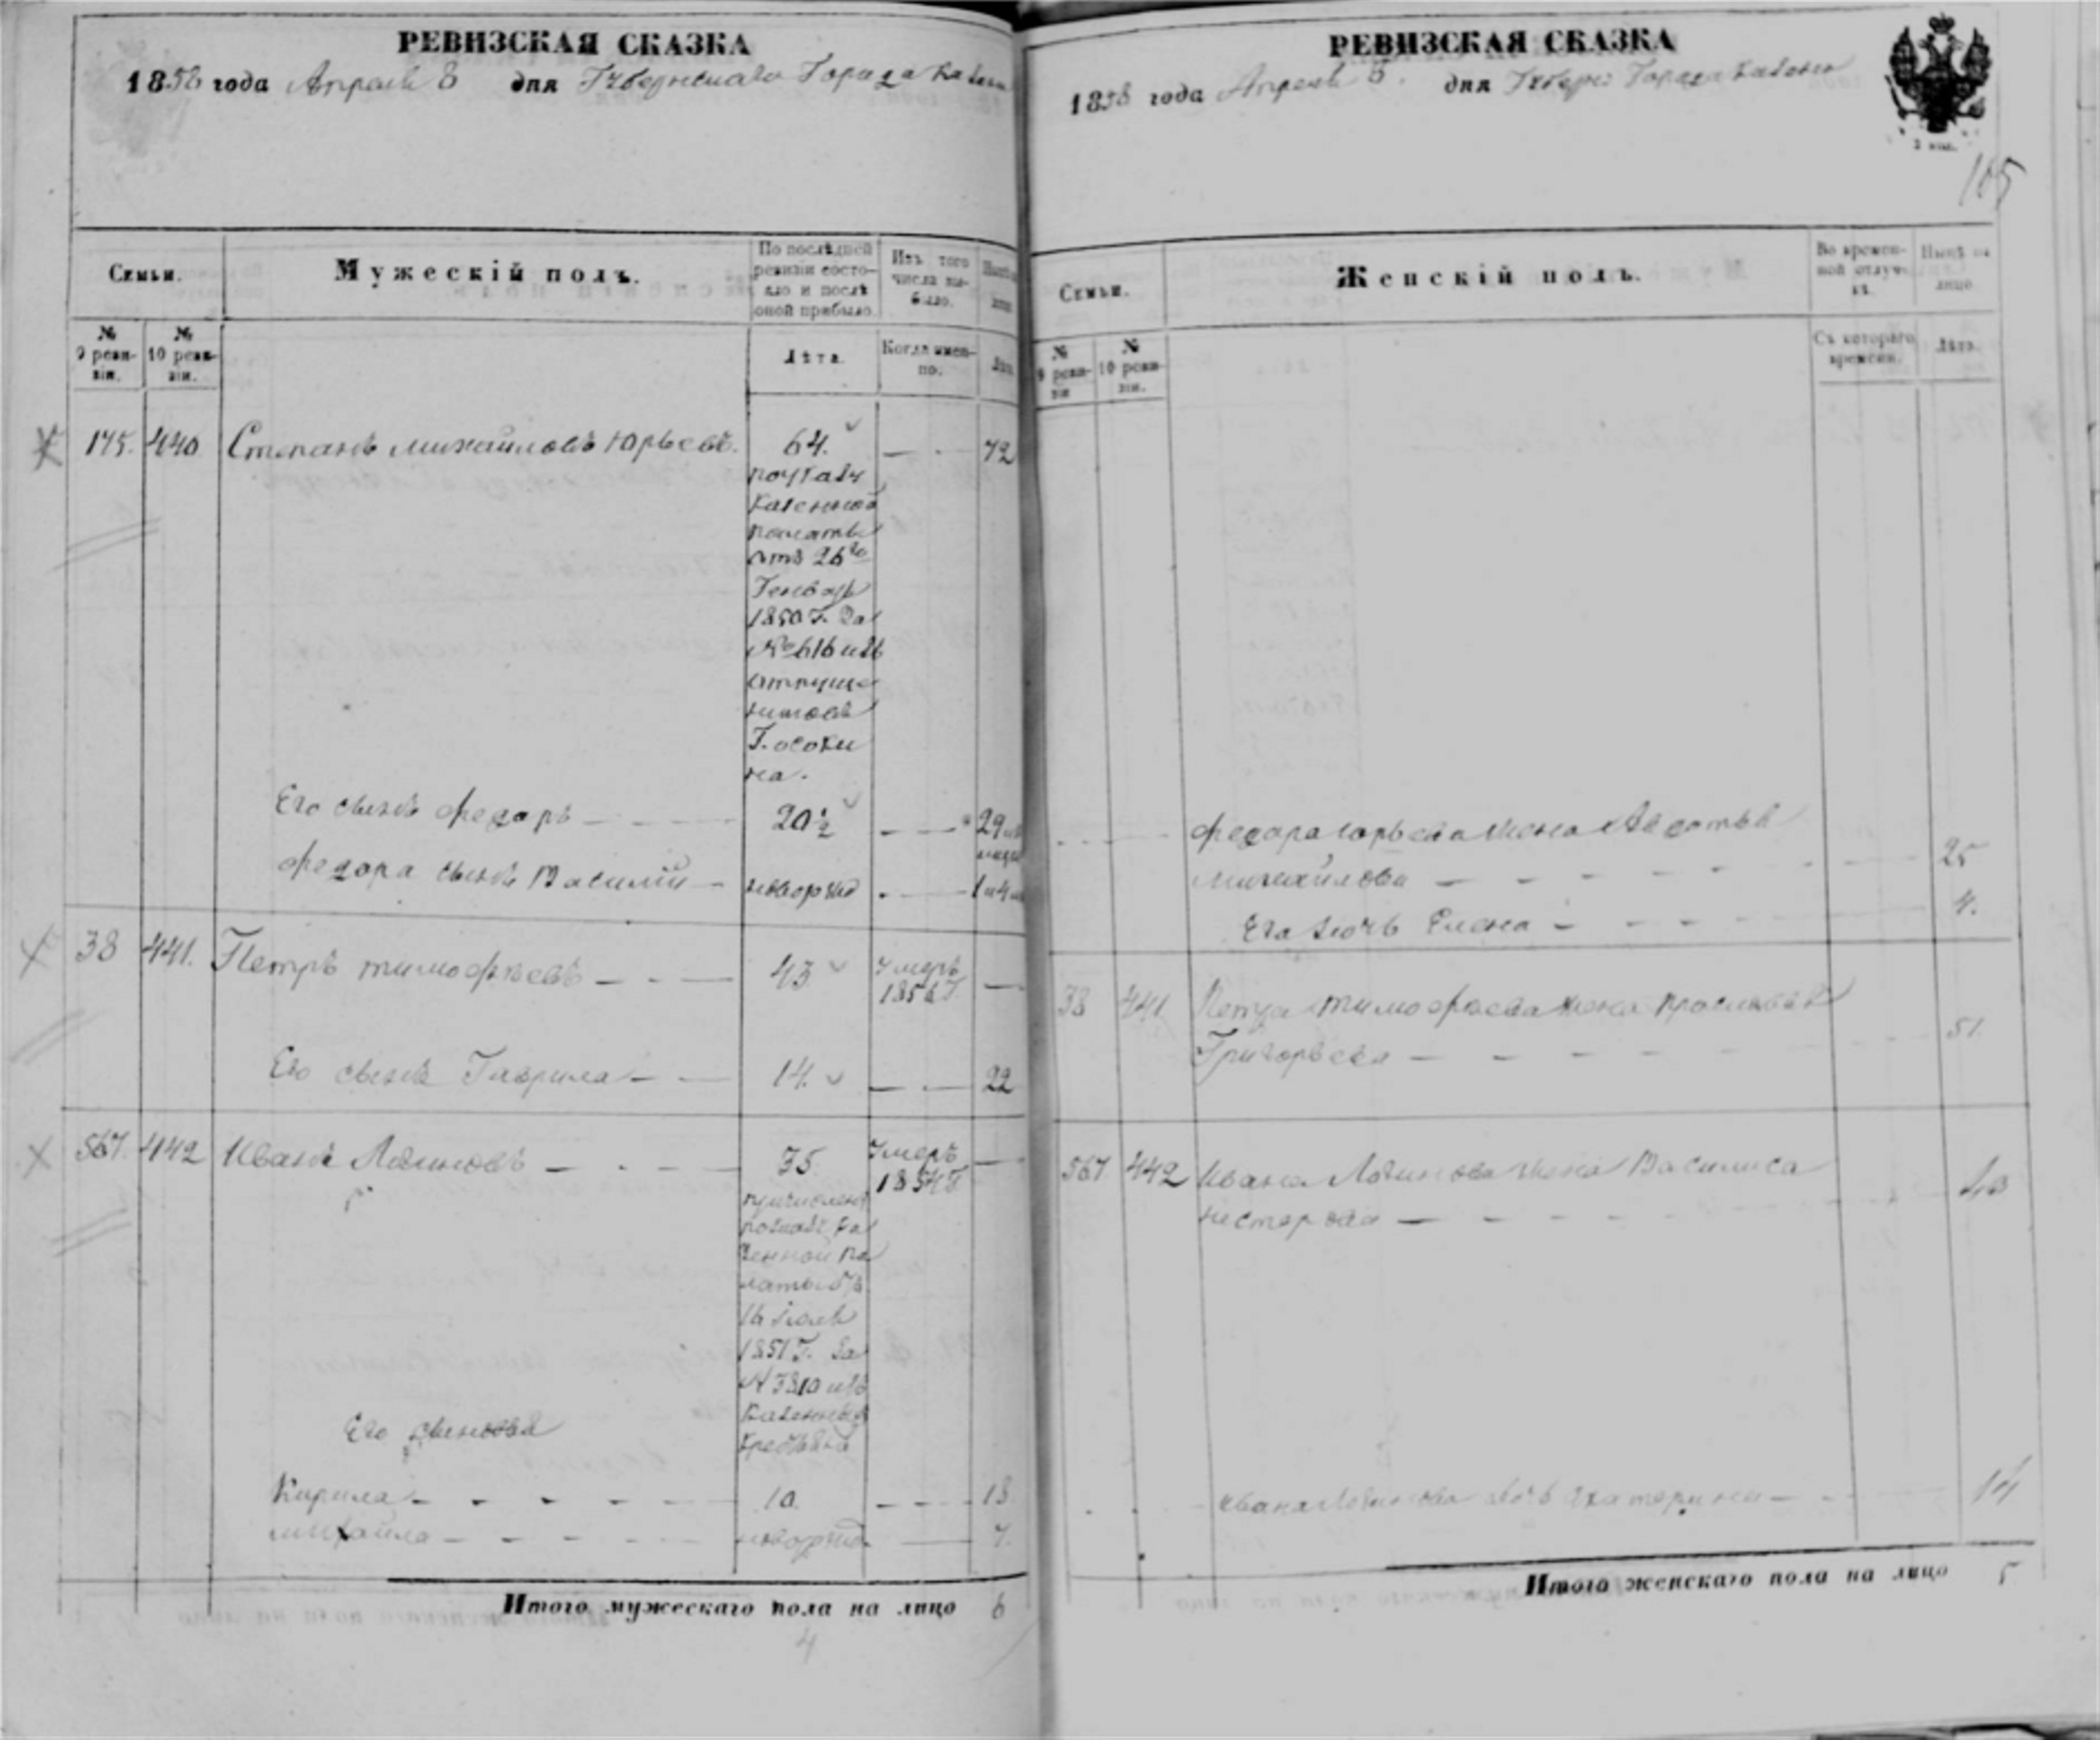 РЕВИЗСКАЯ СКАЗКА
1858 года Апреля 8 дня Губернскаго Города Казани
Семьи.
Мужескій полъ.
По послѣдней ревизіи состояло и послѣ оной прибыло.
Изъ того числа выбыло.
№ 9 ревизіи.
№ 10 ревизіи.
Лѣта.
Когда именно.
Лѣта
175. 440 Степанъ Михайловъ Юрьевъ. 64. 72
по указу
Казенной
палаты
отъ 26го
Генваря
1850 г. за
№ 616 изъ
отпуще
никовъ
Г. Осоки
на.
Его сынъ Федоръ 20½ 29
Федора сынъ Василій новорожд 1 и 4
38 441. Петръ Тимофѣевъ 43 умеръ 1856 г.
Его сынъ Гаврила 14. 22
567. 442 Иванъ Логиновъ 35 умеръ
причислен
Казенной па
латы
16 Іюля
1851 г. за
№ 3810 изъ
Казенныхъ
крестьянъ
Его сыновья
Кирила 10. 18
Михайла новорожд. 7.
Итого мужескаго пола на лицо 6
4
РЕВИЗСКАЯ СКАЗКА
1858 года Апреля 8. дня Губерн: Города Казани
105
Семьи.
Женскій полъ.
Во временной отлучкѣ.
Нынѣ на лицо
№ 9 ревизіи
№ 10 ревизіи.
Съ котораго времени.
Лѣта.
Федора Юрьева жена Авдотья
Михайлова 25
Его дочь Елена 4.
38 441 Петра Тимофѣева жена Прасковья
Григорьева 51.
567 442 Ивана Логинова жена Василиса
Нестерова 40
Ивана Логинова дочь Екатерина 14
Итого женскаго пола на лицо 5